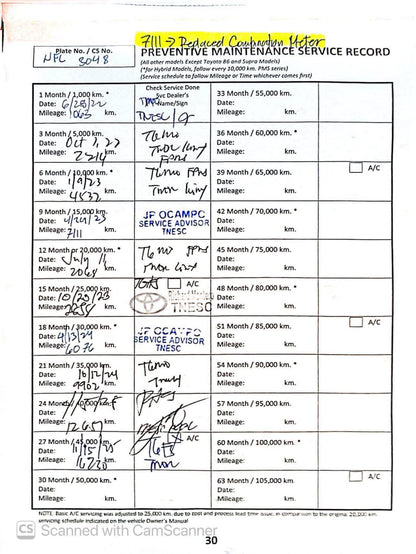 7111 → Replaced Combination Meter
PREVENTIVE MAINTENANCE SERVICE RECORD
(All other models Except Toyota 86 and Supra Models)
(*for Hybrid Models, follow every 10,000 km. PMS series)
(Service schedule to follow Mileage or Time whichever comes first)
Plate No. / CS No.
NFL 3048
Check Service Done
Svc Dealer's
Name/Sign
1 Month / 1,000 km. *
Date: 6/28/22
Mileage: 1063 km.
TNESC/
33 Month / 55,000 km.
Date:
Mileage: km.
3 Month / 5,000 km.
Date: Oct 7, 22
Mileage: 2214 km.
36 Month / 60,000 km. *
Date:
Mileage: km.
6 Month / 10,000 km. *
Date: 1/9/23
Mileage: 4532 km.
39 Month / 65,000 km.
Date:
Mileage: km.
A/C
9 Month / 15,000 km.
Date: 4/24/23
Mileage: 7111 km.
JF OCAMPO
SERVICE ADVISOR
TNESC
42 Month / 70,000 km. *
Date:
Mileage: km.
12 Month or 20,000 km. *
Date: July 11
Mileage: 2068 km.
45 Month / 75,000 km.
Date:
Mileage: km.
15 Month / 25,000 km.
Date: 10/25/23
Mileage: km.
A/C
TNESC
48 Month / 80,000 km. *
Date:
Mileage: km.
18 Month / 30,000 km. *
Date: 4/13/24
Mileage: 6076 km.
JF OCAMPO
SERVICE ADVISOR
TNESC
51 Month / 85,000 km.
Date:
Mileage: km.
A/C
21 Month / 35,000 km.
Date: 10/12/24
Mileage: 9902 km.
54 Month / 90,000 km. *
Date:
Mileage: km.
24 Month / 40,000 km. *
Date:
Mileage: 12657 km.
57 Month / 95,000 km.
Date:
Mileage: km.
27 Month / 45,000 km.
Date: 11/15/25
Mileage: 16220 km.
A/C
60 Month / 100,000 km. *
Date:
Mileage: km.
30 Month / 50,000 km. *
Date:
Mileage: km.
63 Month / 105,000 km.
Date:
Mileage: km.
A/C
NOTE: Basic A/C servicing was adjusted to 25,000 km. due to cost and process lead time issue, in comparison to the original 20,000 km. servicing schedule indicated on the vehicle Owner's Manual
CS Scanned with CamScanner
30